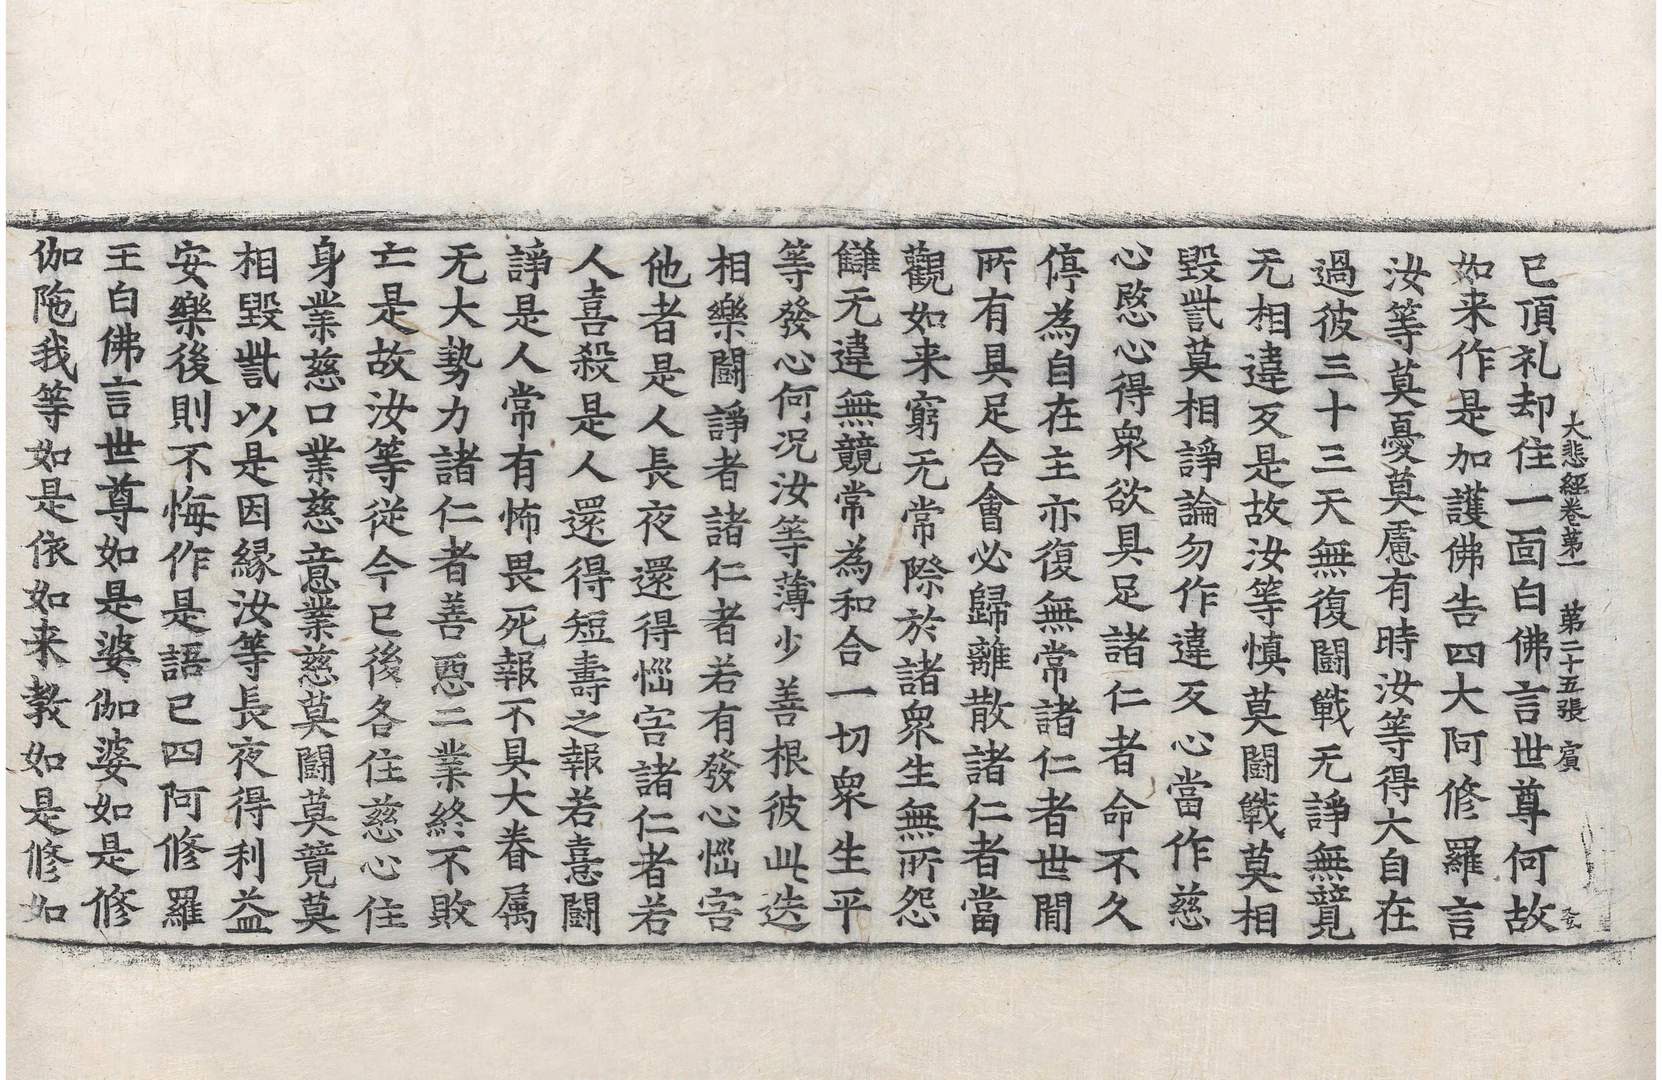 大悲經卷第一 第二十五張 賓
已頂礼却住一面白佛言世尊何故
如来作是加護佛告四大阿修羅言
汝等莫憂莫慮有時汝等得大自在
過彼三十三天無復鬪戰无諍無競
无相違反是故汝等慎莫鬪戰莫相
毀呰莫相諍論勿作違反心當作慈
心愍心得衆欲具足諸仁者命不久
停為自在主亦復無常諸仁者世間
所有具足合會必歸離散諸仁者當
觀如来窮无常際於諸衆生無所怨
讎无違無競常為和合一切衆生平
等發心何况汝等薄少善根彼此迭
相樂鬪諍者諸仁者若有發心惱害
他者是人長夜還得惱害諸仁者若
人喜殺是人還得短壽之報若憙鬪
諍是人常有怖畏死報不具大眷属
无大勢力諸仁者善惡二業終不敗
亡是故汝等從今已後各住慈心住
身業慈口業慈意業慈莫鬪莫競莫
相毀呰以是因緣汝等長夜得利益
安樂後則不悔作是語已四阿修羅
王白佛言世尊如是婆伽婆如是修
伽陁我等如是依如来教如是修如